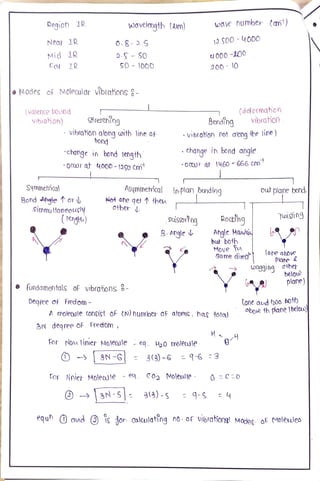 Region IR wavelength (um) wave number (cm⁻¹)
Near IR 0.8 - 2.5 12500 - 4000
Mid IR 2.5 - 50 4000 - 200
Far IR 50 - 1000 200 - 10
• Modes of Molecular vibrations :-
(valence bound vibration) Stretching
- vibration along with line of bond
- change in bond length
- occur at 4000 - 1250 cm⁻¹
Bending (deformation vibration)
- vibration not along the line)
- change in bond angle
- occur at 1460 - 666 cm⁻¹
Symmetrical
Bond Angle ↑ or ↓
simmultaneously
(length)
Asymmetrical
one get ↑ then
other ↓
In plan bending
out plane bend.
scissoring
B. angle ↓
Rocking
Angle
but both
Move in
same direcⁿ
Twisting
(one above
plane &
other
below
plane)
wagging
(one and two both
above th plane (below)
• fundamentals of vibrations :-
Degree of fredom -
A molecule consist of (N) number of atoms, has total
3N degree of freedom,
for Non linier Molecule - eg. H₂O molecule
H O H
① → 3N-6 = 3(3)-6 = 9-6 = 3
for linier Molecule - eg. CO₂ Molecule - O = C = O
② → 3N-5 = 3(3)-5 = 9-5 = 4
equⁿ ① and ② is for calculating no. of vibrational Modes of Molecules